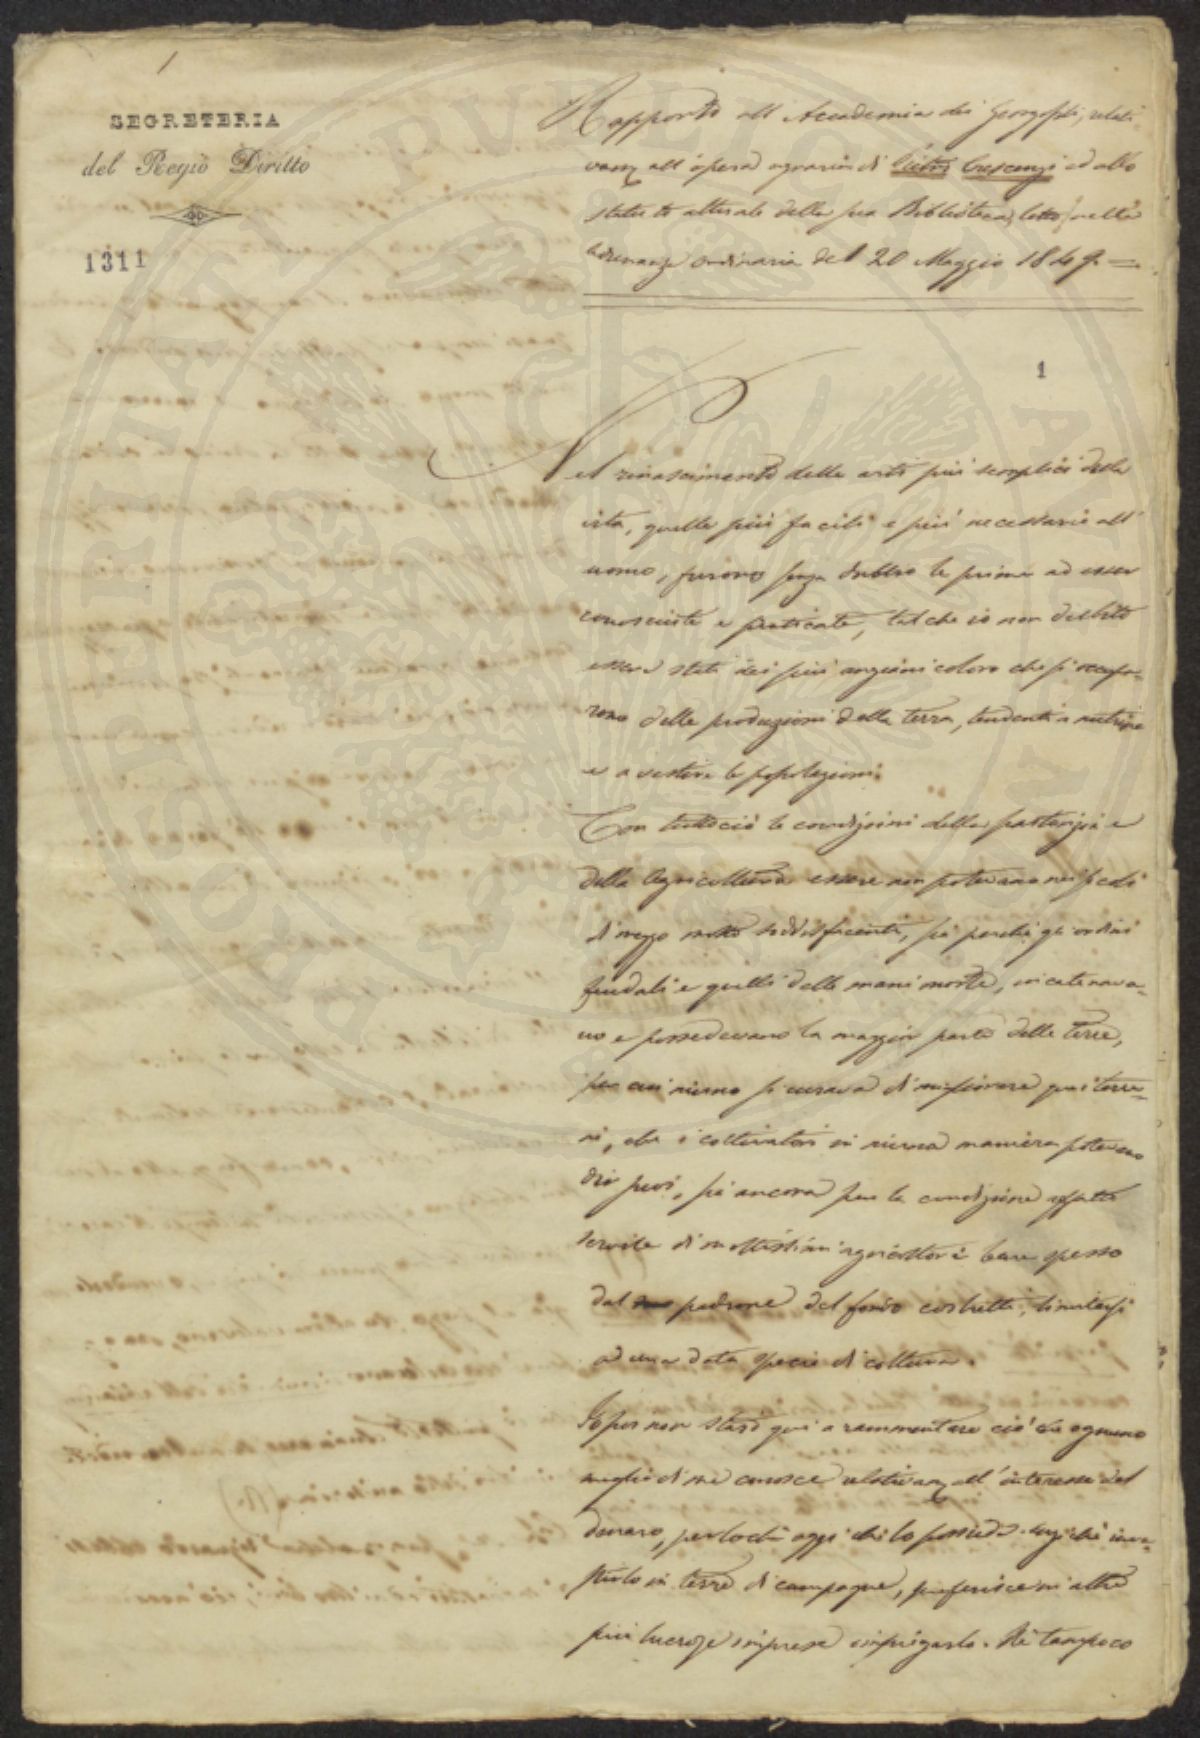 1
SEGRETERIA
del Regio Diritto
1311
Rapporto all'Accademia dei Georgofili, relati
vam. all'opera agraria di Pietro Crescenzi ed allo
stato attuale della sua Biblioteca, letto nella
Adunanza ordinaria del 20 Maggio 1849. =
1
Nel rinascimento delle arti più semplici della
vita, quelle più facili e più necessarie all'
uomo, furono senza dubbio le prime ad esser
conosciute e praticate, talché io non dubito
essere stati dei più anziani coloro che si occupa-
rono delle produzioni della terra, tendenti a nutrire
e a vestire le popolazioni.
Con tuttociò le condizioni della pastorizia e
della Agricoltura essere non potevano nei secoli
di mezzo molto soddisfacenti, sì perché gli ordini
feudali e quelli delle mani morte, incatenava-
no e possedevano la maggior parte delle terre,
per cui niuno si curava di migliorare quei terre-
ni, che i coltivatori in niuna maniera potevano
dir suoi, sì ancora per la condizione affatto
servile di moltissimi agricoltori bene spesso
dal padrone del fondo costretti, limitarsi
ad una data specie di coltura.
Io pur non starò qui a rammentare ciò che ognuno
meglio di me conosce relativam. all'interesse del
denaro, perloché oggi chi lo possiede anziché inve-
stirlo in terre di campagne, preferisce in altre
più lucrose imprese impiegarlo. Né tampoco
PROSPERITATI PVBLICAE AVGENDAE